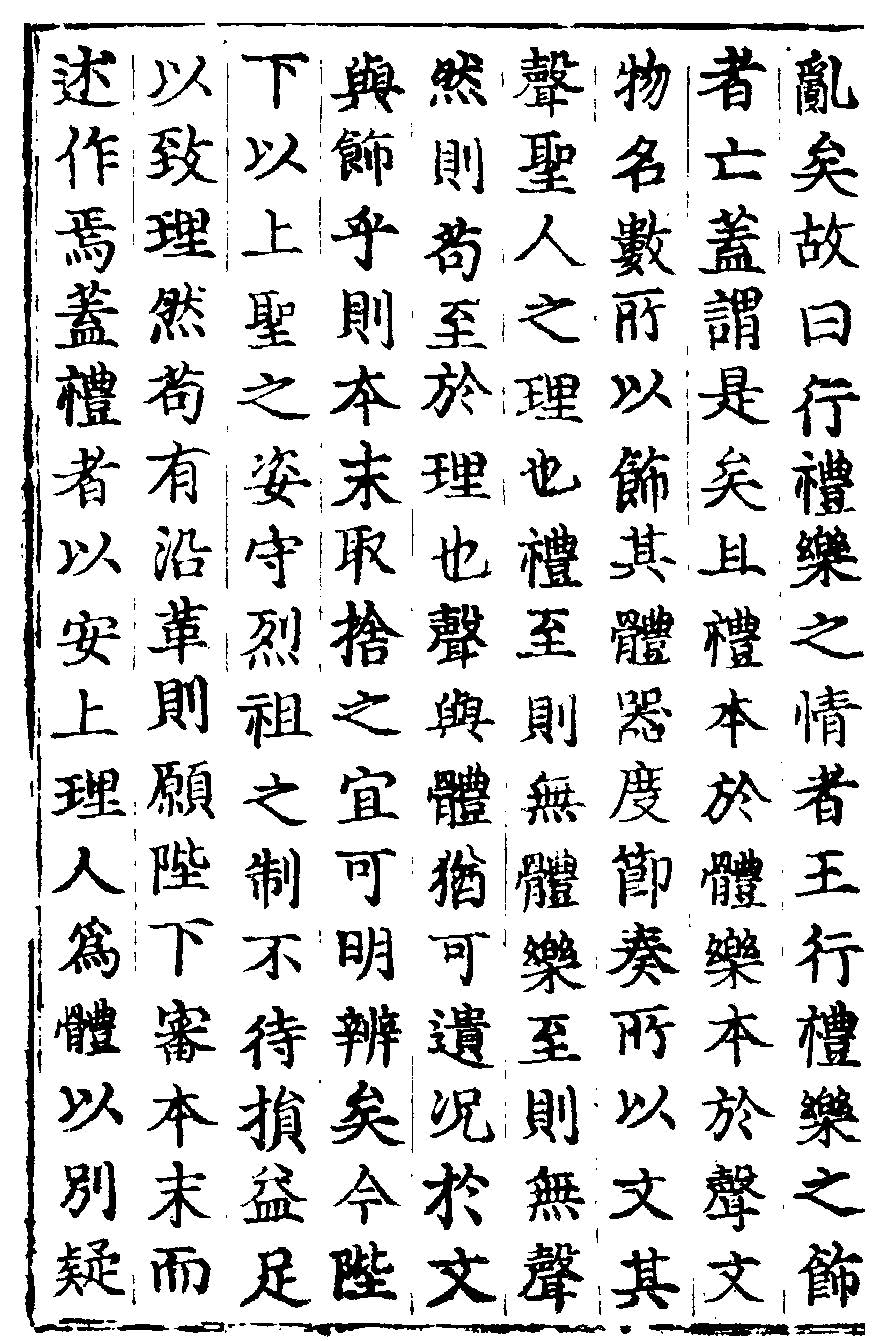 亂矣故曰行禮樂之情者王行禮樂之飾
者亡蓋謂是矣且禮本於體樂本於聲文
物名數所以飾其體器度節奏所以文其
聲聖人之理也禮至則無體樂至則無聲
然則苟至於理也聲與體猶可遺况於文
與飾乎則本末取捨之宜可明辨矣今陛
下以上聖之姿守烈祖之制不待損益足
以致理然苟有沿革則願陛下審本末而
述作焉蓋禮者以安上理人爲體以別疑